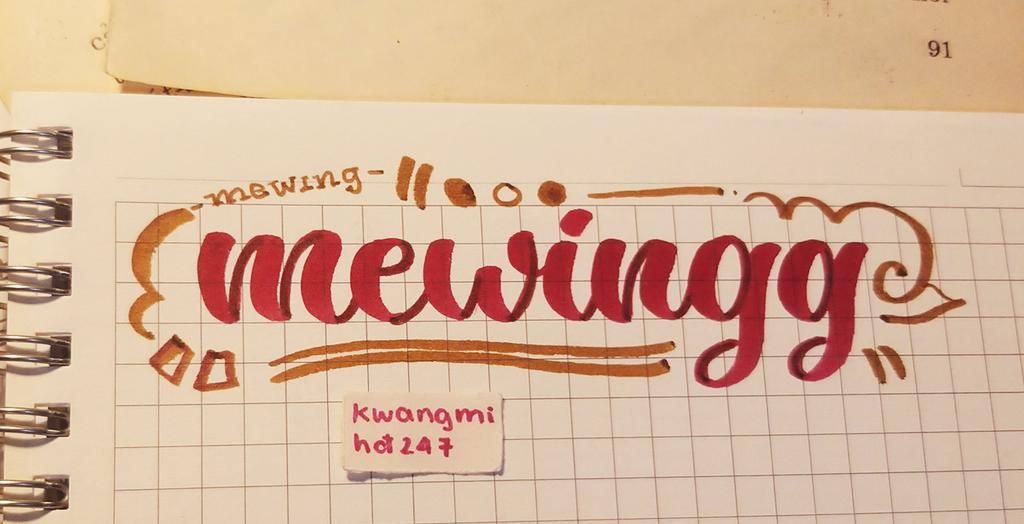 91
-mewing-
mewingg
kwangmi
hot247